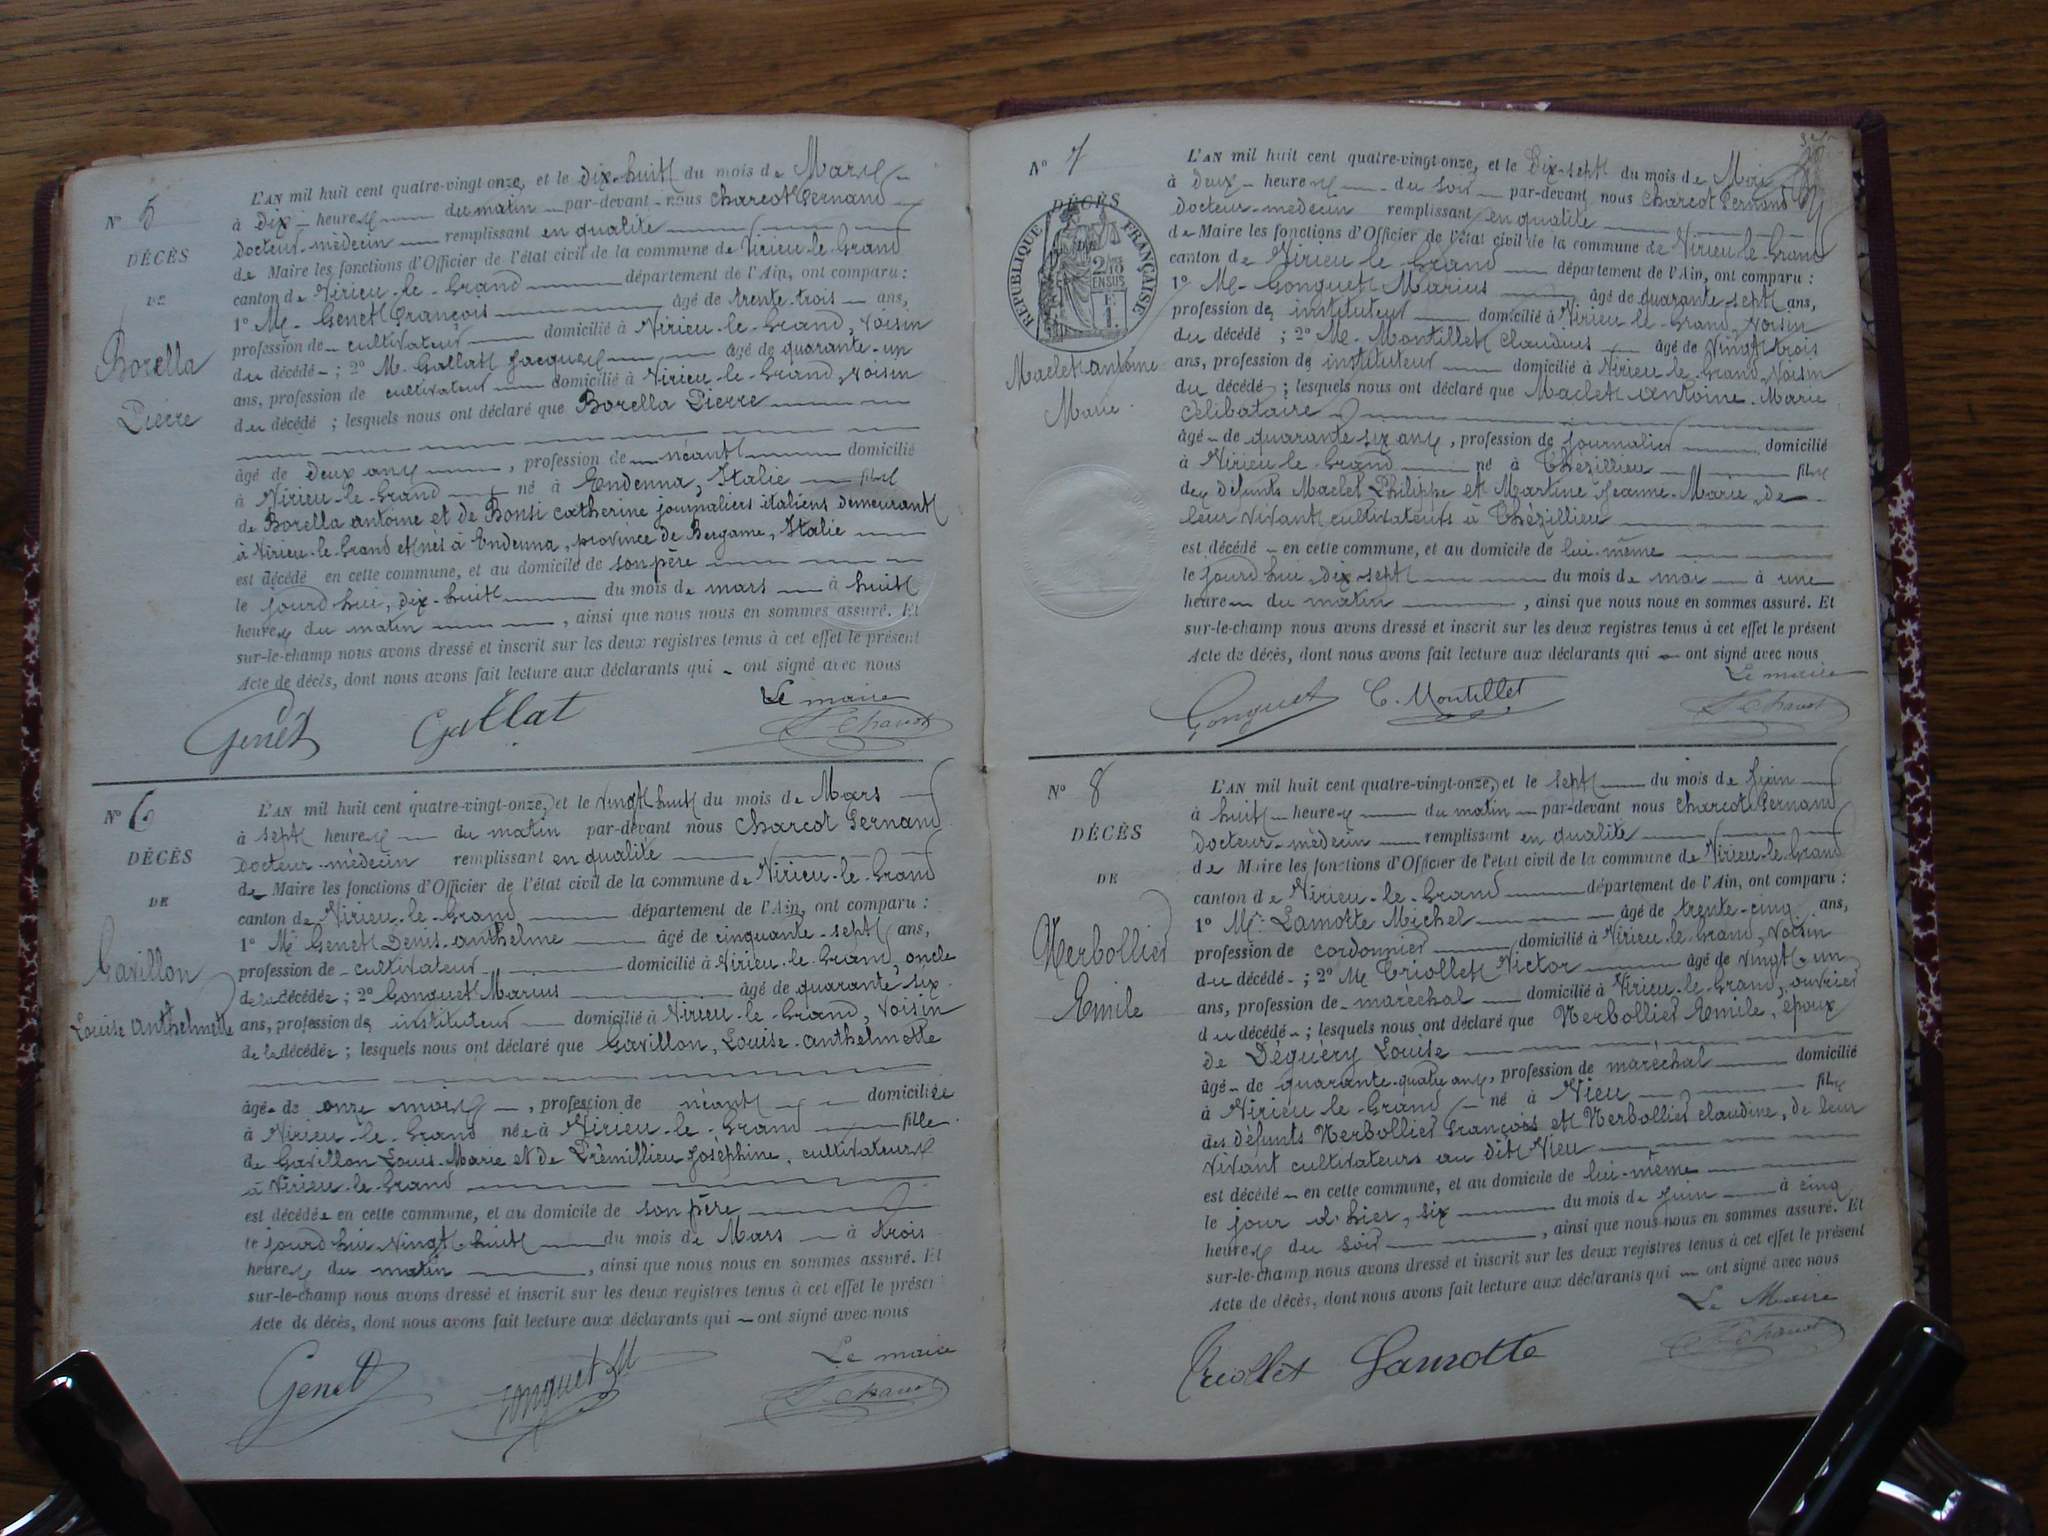 N° 5
DÉCÈS
DE
Borella
Pierre
L'AN mil huit cent quatre-vingt-onze, et le dix-huit du mois de Mars
à dix heures du matin par-devant nous Charcot Fernand
Docteur-médecin remplissant en qualité
de Maire les fonctions d'Officier de l'état civil de la commune de Virieu-le-Grand
canton de Virieu-le-Grand département de l'Ain, ont comparu :
1° Mr Genet François âgé de trente-trois ans,
profession de cultivateur domicilié à Virieu-le-Grand, voisin
du décédé ; 2° M. Gallat Jacques âgé de quarante-un
ans, profession de cultivateur domicilié à Virieu-le-Grand, voisin
du décédé ; lesquels nous ont déclaré que Borella Pierre
âgé de deux ans, profession de néant domicilié
à Virieu-le-Grand né à Endenna, Italie fils
de Borella Antoine et de Bonsi Catherine journaliers italiens demeurant
à Virieu-le-Grand et nés à Endenna, province de Bergame, Italie
est décédé en cette commune, et au domicile de son père
le jourd'hui, dix-huit du mois de mars à huit
heures du matin, ainsi que nous nous en sommes assuré. Et
sur-le-champ nous avons dressé et inscrit sur les deux registres tenus à cet effet le présent
Acte de décès, dont nous avons fait lecture aux déclarants qui ont signé avec nous
Le maire
Genet Gallat
N° 6
DÉCÈS
DE
Gavillon
Louise Anthelmette
L'AN mil huit cent quatre-vingt-onze, et le vingt huit du mois de Mars
à sept heures du matin par-devant nous Charcot Fernand
Docteur-médecin remplissant en qualité
de Maire les fonctions d'Officier de l'état civil de la commune de Virieu-le-Grand
canton de Virieu-le-Grand département de l'Ain, ont comparu :
1° Mr Genet Denis-Anthelme âgé de cinquante-sept ans,
profession de cultivateur domicilié à Virieu-le-Grand, oncle
de la décédée ; 2° Gonguet Marius âgé de quarante six
ans, profession de instituteur domicilié à Virieu-le-Grand, voisin
de la décédée ; lesquels nous ont déclaré que Gavillon, Louise-Anthelmette
âgé de onze mois, profession de néant domiciliée
à Virieu-le-Grand née à Virieu-le-Grand fille
de Gavillon Louis-Marie et de Prémillieu Joséphine, cultivateurs
à Virieu-le-Grand
est décédée en cette commune, et au domicile de son père
le jourd'hui vingt-huit du mois de Mars à trois
heures du matin, ainsi que nous nous en sommes assuré. Et
sur-le-champ nous avons dressé et inscrit sur les deux registres tenus à cet effet le présent
Acte de décès, dont nous avons fait lecture aux déclarants qui ont signé avec nous
Le maire
Genet Gonguet M
N° 7
DÉCÈS
DE
RÉPUBLIQUE FRANÇAISE
2/10 EN SUS
Maclet Antoine
Marie
L'AN mil huit cent quatre-vingt-onze, et le dix-sept du mois de Mai
à deux heures du soir par-devant nous Charcot Fernand
Docteur-médecin remplissant en qualité
de Maire les fonctions d'Officier de l'état civil de la commune de Virieu-le-Grand
canton de Virieu-le-Grand département de l'Ain, ont comparu :
1° Mr Gonguet Marius âgé de quarante sept ans,
profession de instituteur domicilié à Virieu-le-Grand, voisin
du décédé ; 2° M. Montillet Claudius âgé de vingt trois
ans, profession de instituteur domicilié à Virieu-le-Grand, voisin
du décédé ; lesquels nous ont déclaré que Maclet Antoine-Marie
célibataire
âgé de quarante six ans, profession de journalier domicilié
à Virieu-le-Grand né à Thézillieu fils
des défunts Maclet Philippe et Martine Jeanne-Marie, de
leur vivant cultivateurs à Thézillieu
est décédé en cette commune, et au domicile de lui-même
le jourd'hui dix-sept du mois de mai à une
heure du matin, ainsi que nous nous en sommes assuré. Et
sur-le-champ nous avons dressé et inscrit sur les deux registres tenus à cet effet le présent
Acte de décès, dont nous avons fait lecture aux déclarants qui ont signé avec nous
Le maire
Gonguet C. Montillet
N° 8
DÉCÈS
DE
Verbollier
Emile
L'AN mil huit cent quatre-vingt-onze, et le sept du mois de Juin
à huit heures du matin par-devant nous Charcot Fernand
Docteur-médecin remplissant en qualité
de Maire les fonctions d'Officier de l'état civil de la commune de Virieu-le-Grand
canton de Virieu-le-Grand département de l'Ain, ont comparu :
1° Mr Lamotte Michel âgé de trente-cinq ans,
profession de cordonnier domicilié à Virieu-le-Grand, voisin
du décédé ; 2° Mr Triollet Victor âgé de vingt-un
ans, profession de maréchal domicilié à Virieu-le-Grand, ouvrier
du décédé ; lesquels nous ont déclaré que Verbollier Emile, époux
de Déguéry Louise
âgé de quarante-quatre ans, profession de maréchal domicilié
à Virieu-le-Grand né à Vieu fils
des défunts Verbollier François et Verbollier Claudine, de leur
vivant cultivateurs au dit Vieu
est décédé en cette commune, et au domicile de lui-même
le jour d'hier, six du mois de Juin à cinq
heures du soir, ainsi que nous nous en sommes assuré. Et
sur-le-champ nous avons dressé et inscrit sur les deux registres tenus à cet effet le présent
Acte de décès, dont nous avons fait lecture aux déclarants qui ont signé avec nous
Le Maire
Triollet Lamotte